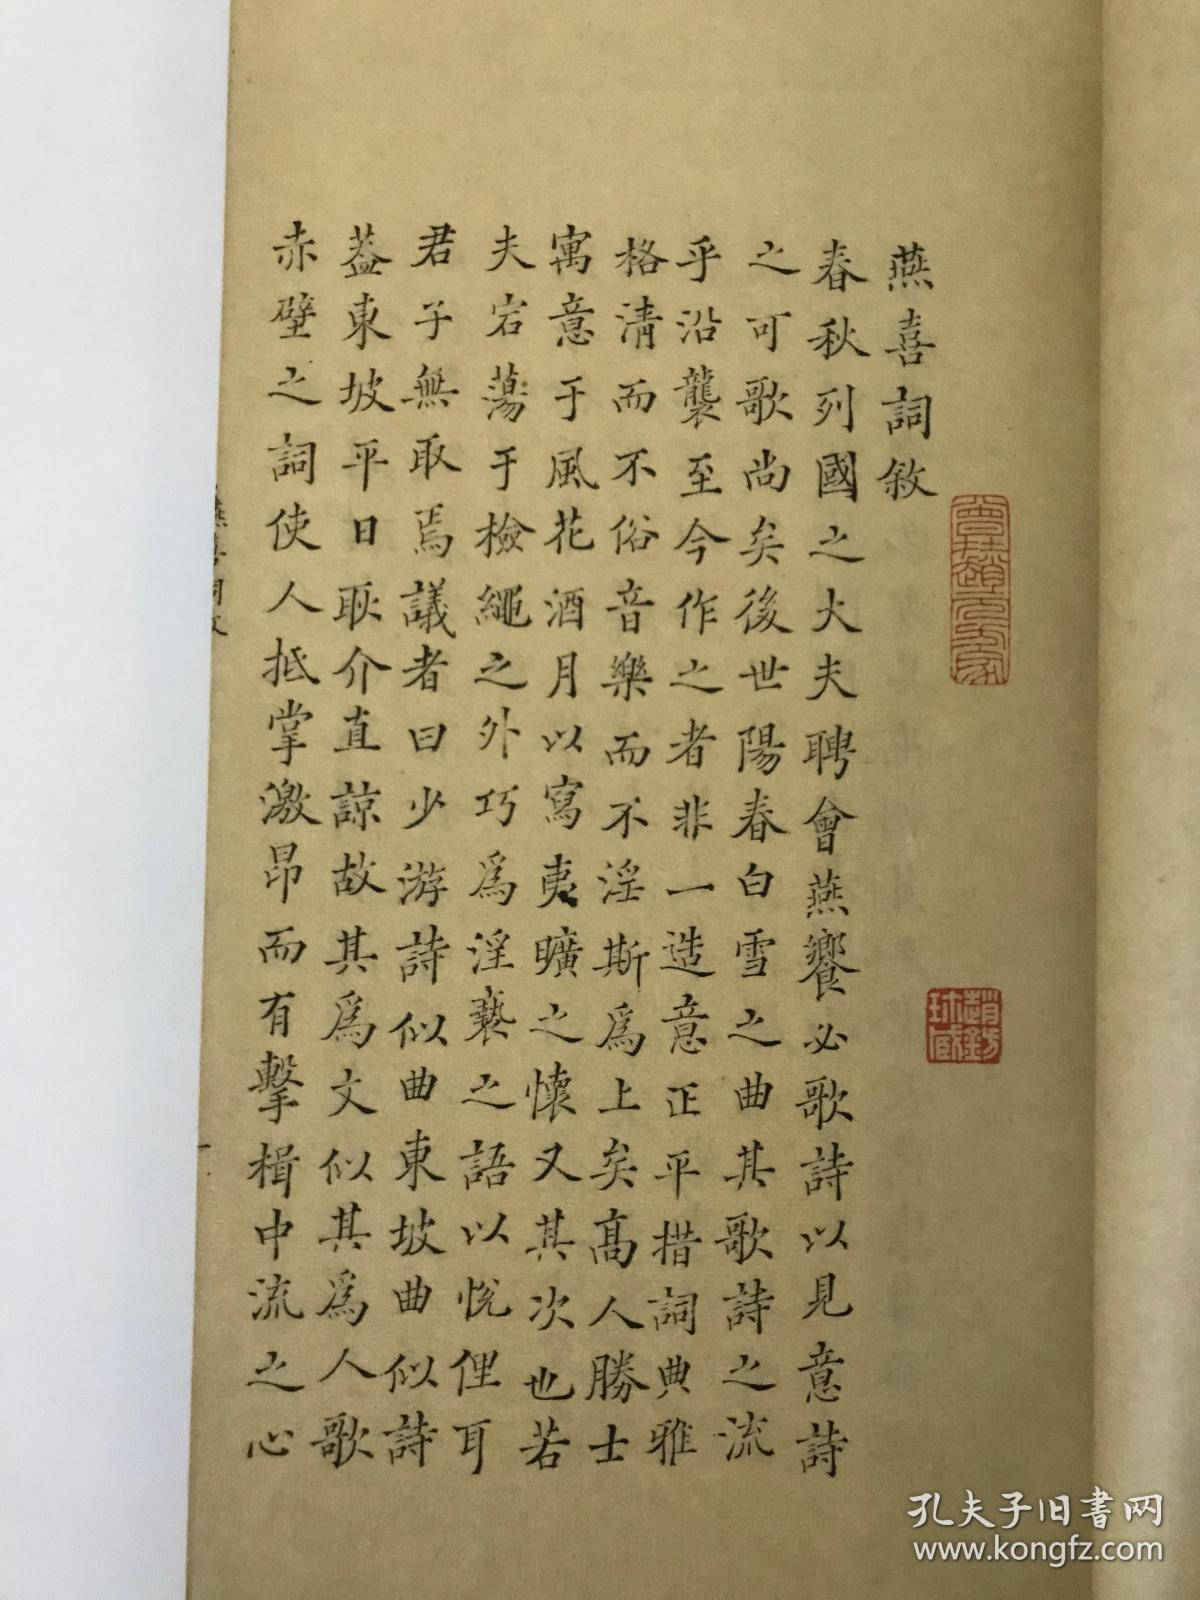 燕喜詞敘
春秋列國之大夫聘會燕饗必歌詩以見意詩
之可歌尚矣後世陽春白雪之曲其歌詩之流
乎沿襲至今作之者非一造意正平措詞典雅
格清而不俗音樂而不淫斯爲上矣高人勝士
寓意于風花酒月以寫夷曠之懷又其次也若
夫宕蕩于檢繩之外巧爲淫褻之語以悅俚耳
君子無取焉議者曰少游詩似曲東坡曲似詩
葢東坡平日耿介直諒故其爲文似其爲人歌
赤壁之詞使人抵掌激昂而有擊楫中流之心
燕喜詞敘
一
孔夫子旧书网
www.kongfz.com